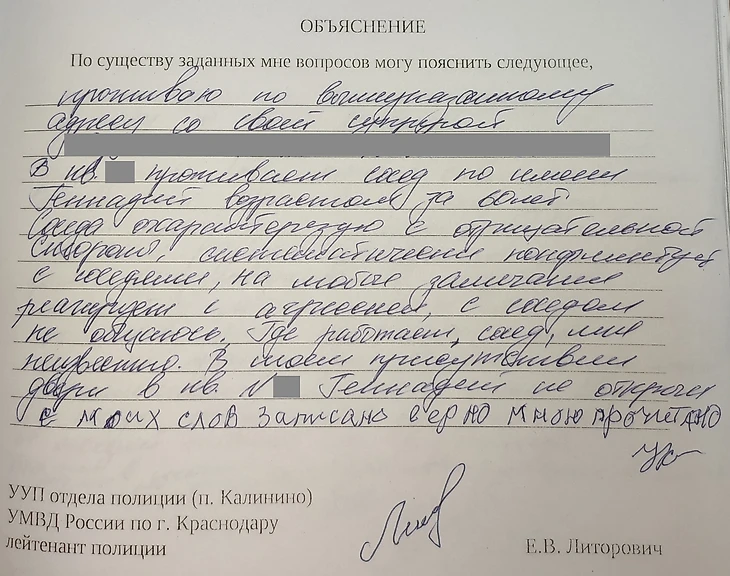 ОБЪЯСНЕНИЕ
По существу заданных мне вопросов могу пояснить следующее,
проживаю по вышеуказанному
адресу со своей супругой
В кв. проживает сосед по имени
Геннадий возрастом за 60 лет.
Соседа охарактерезую с отрицательной
стороны, систематически конфликтует
с соседями, на любые замечания
реагирует с агрессией, с соседом
не общаюсь. Где работает, сосед, мне
неизвестно. В моем присутствии
двери в кв. № Геннадием не открыли
с моих слов записано верно мною прочитано
УУП отдела полиции (п. Калинино)
УМВД России по г. Краснодару
лейтенант полиции
Е.В. Литорович